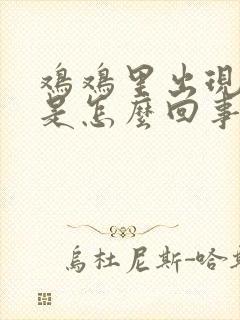 鸡鸡里出現
是怎麼回事
烏杜尼斯-哈